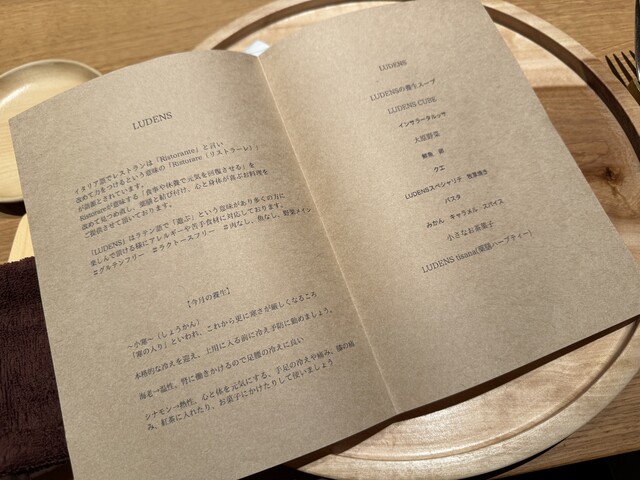 LUDENS
イタリア語でレストランは「Ristorante」と言い、
改めて力をつけるという意味の「Ristorare（リストラーレ）」
が語源とされています。
Ristorareが意味する「食事や休養で元気を回復させる」を
改めて見つめ直し、薬膳と結び付け、心と身体が喜ぶお料理を
ご提供させて頂いております。
「LUDENS」はラテン語で「遊ぶ」という意味があり多くの方に
楽しんで頂ける様にアレルギーや苦手食材に対応しております。
#グルテンフリー #ラクトースフリー #肉なし、魚なし、野菜メイン
【今月の養生】
～小寒～（しょうかん）
「寒の入り」といわれ、これから更に寒さが厳しくなるころ
本格的な冷えを迎え、土用に入る前に冷え予防に努めましょう。
海老→温性。腎に働きかけるので足腰の冷えに良い
シナモン→熱性。心と体を元気にする、手足の冷えや痛み、腰の痛
み、紅茶に入れたり、お菓子にかけたりして使いましょう
LUDENS
LUDENSの養生スープ
LUDENS CUBE
インサラータルッサ
大原野菜
鮮魚 鰤
クエ
LUDENSスペシャリテ
パスタ
みかん キャラメル スパイス
小さなお茶菓子
LUDENS tisana(薬膳ハーブティー)